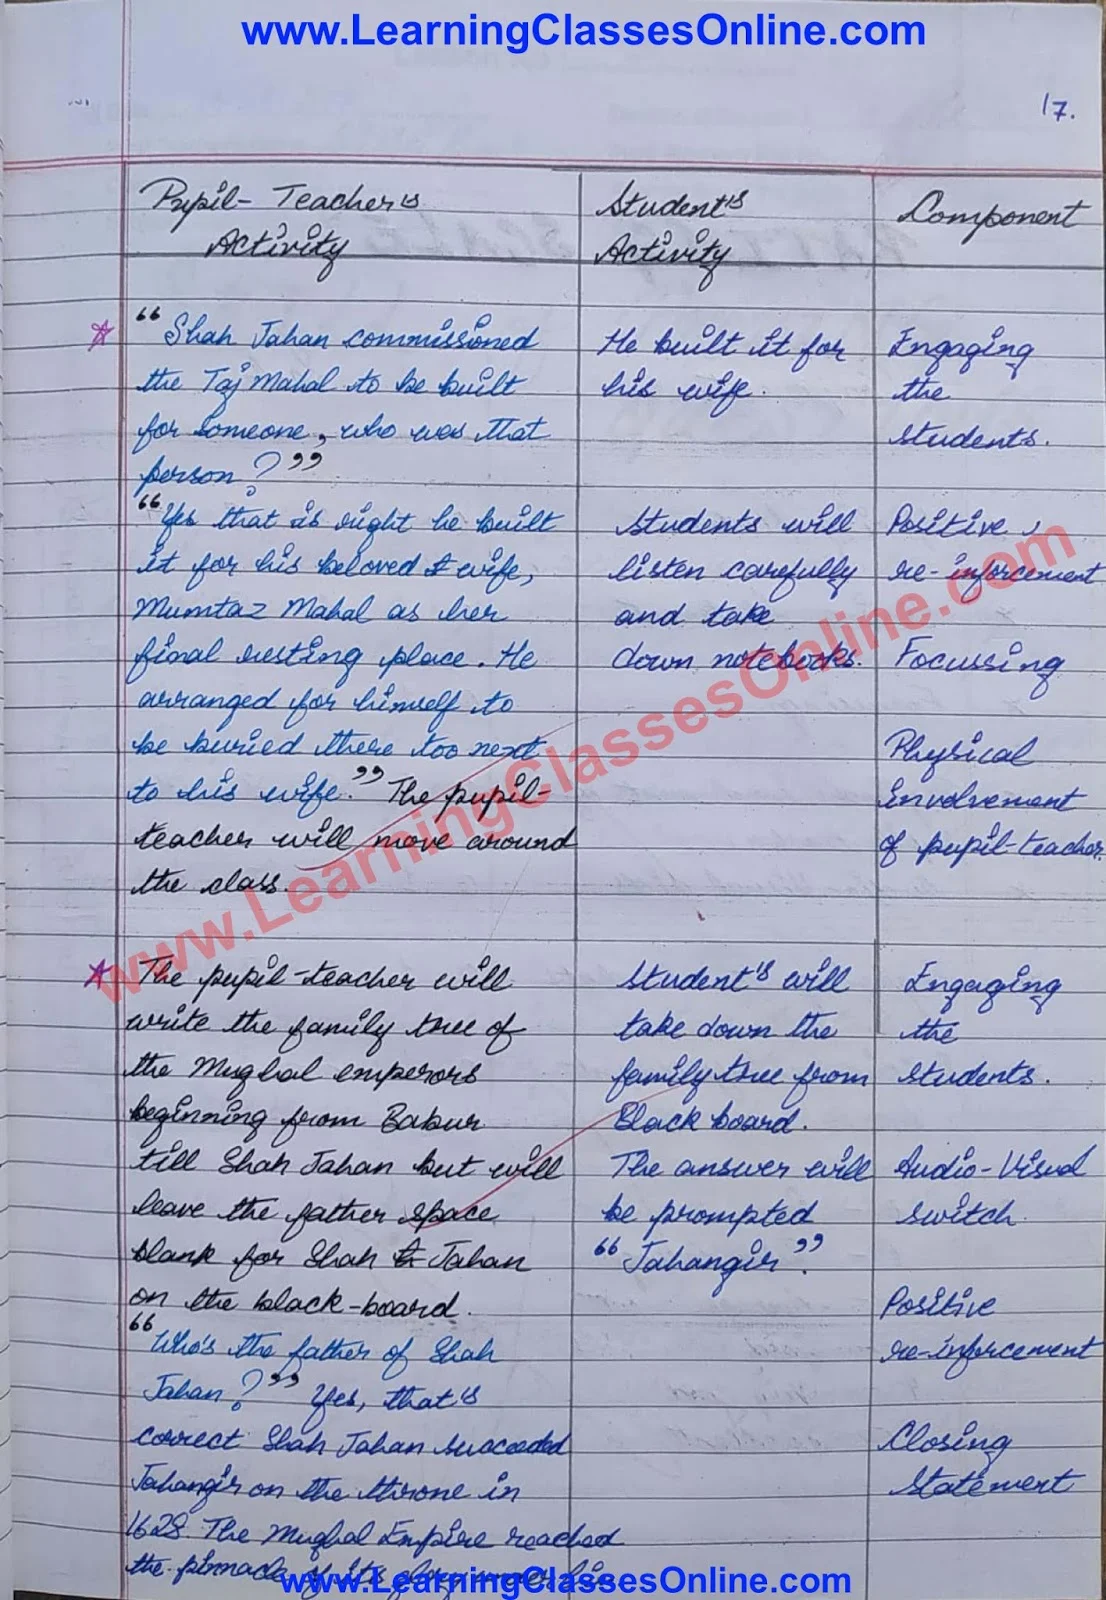 www.LearningClassesOnline.com
17.
Pupil-Teacher's
Activity
Student's
Activity
Component
"Shah Jahan commissioned
the Taj Mahal to be built
for someone, who was that
person?"
He built it for
his wife.
Engaging
the
students.
"Yes that is right he built
it for his beloved wife,
Mumtaz Mahal as her
final resting place. He
arranged for himself to
be buried there too next
to his wife." The pupil-
teacher will move around
the class.
Students will
listen carefully
and take
down notebooks.
Positive
re-inforcement
Focussing
Physical
involvement
of pupil-teacher.
www.LearningClassesOnline.com
The pupil-teacher will
write the family tree of
the Mughal emperors
beginning from Babur
till Shah Jahan but will
leave the father space
blank for Shah Jahan
on the black-board.
"Who's the father of Shah
Jahan?" Yes, that's
correct Shah Jahan succeeded
Jahangir on the throne in
1628. The Mughal Empire reached
the pinnacle of its glory under
Student's will
take down the
family tree from
Black board.
The answer will
be prompted
"Jahangir".
Engaging
the
students.
Audio-Visual
switch.
Positive
re-inforcement
Closing
Statement
www.LearningClassesOnline.com